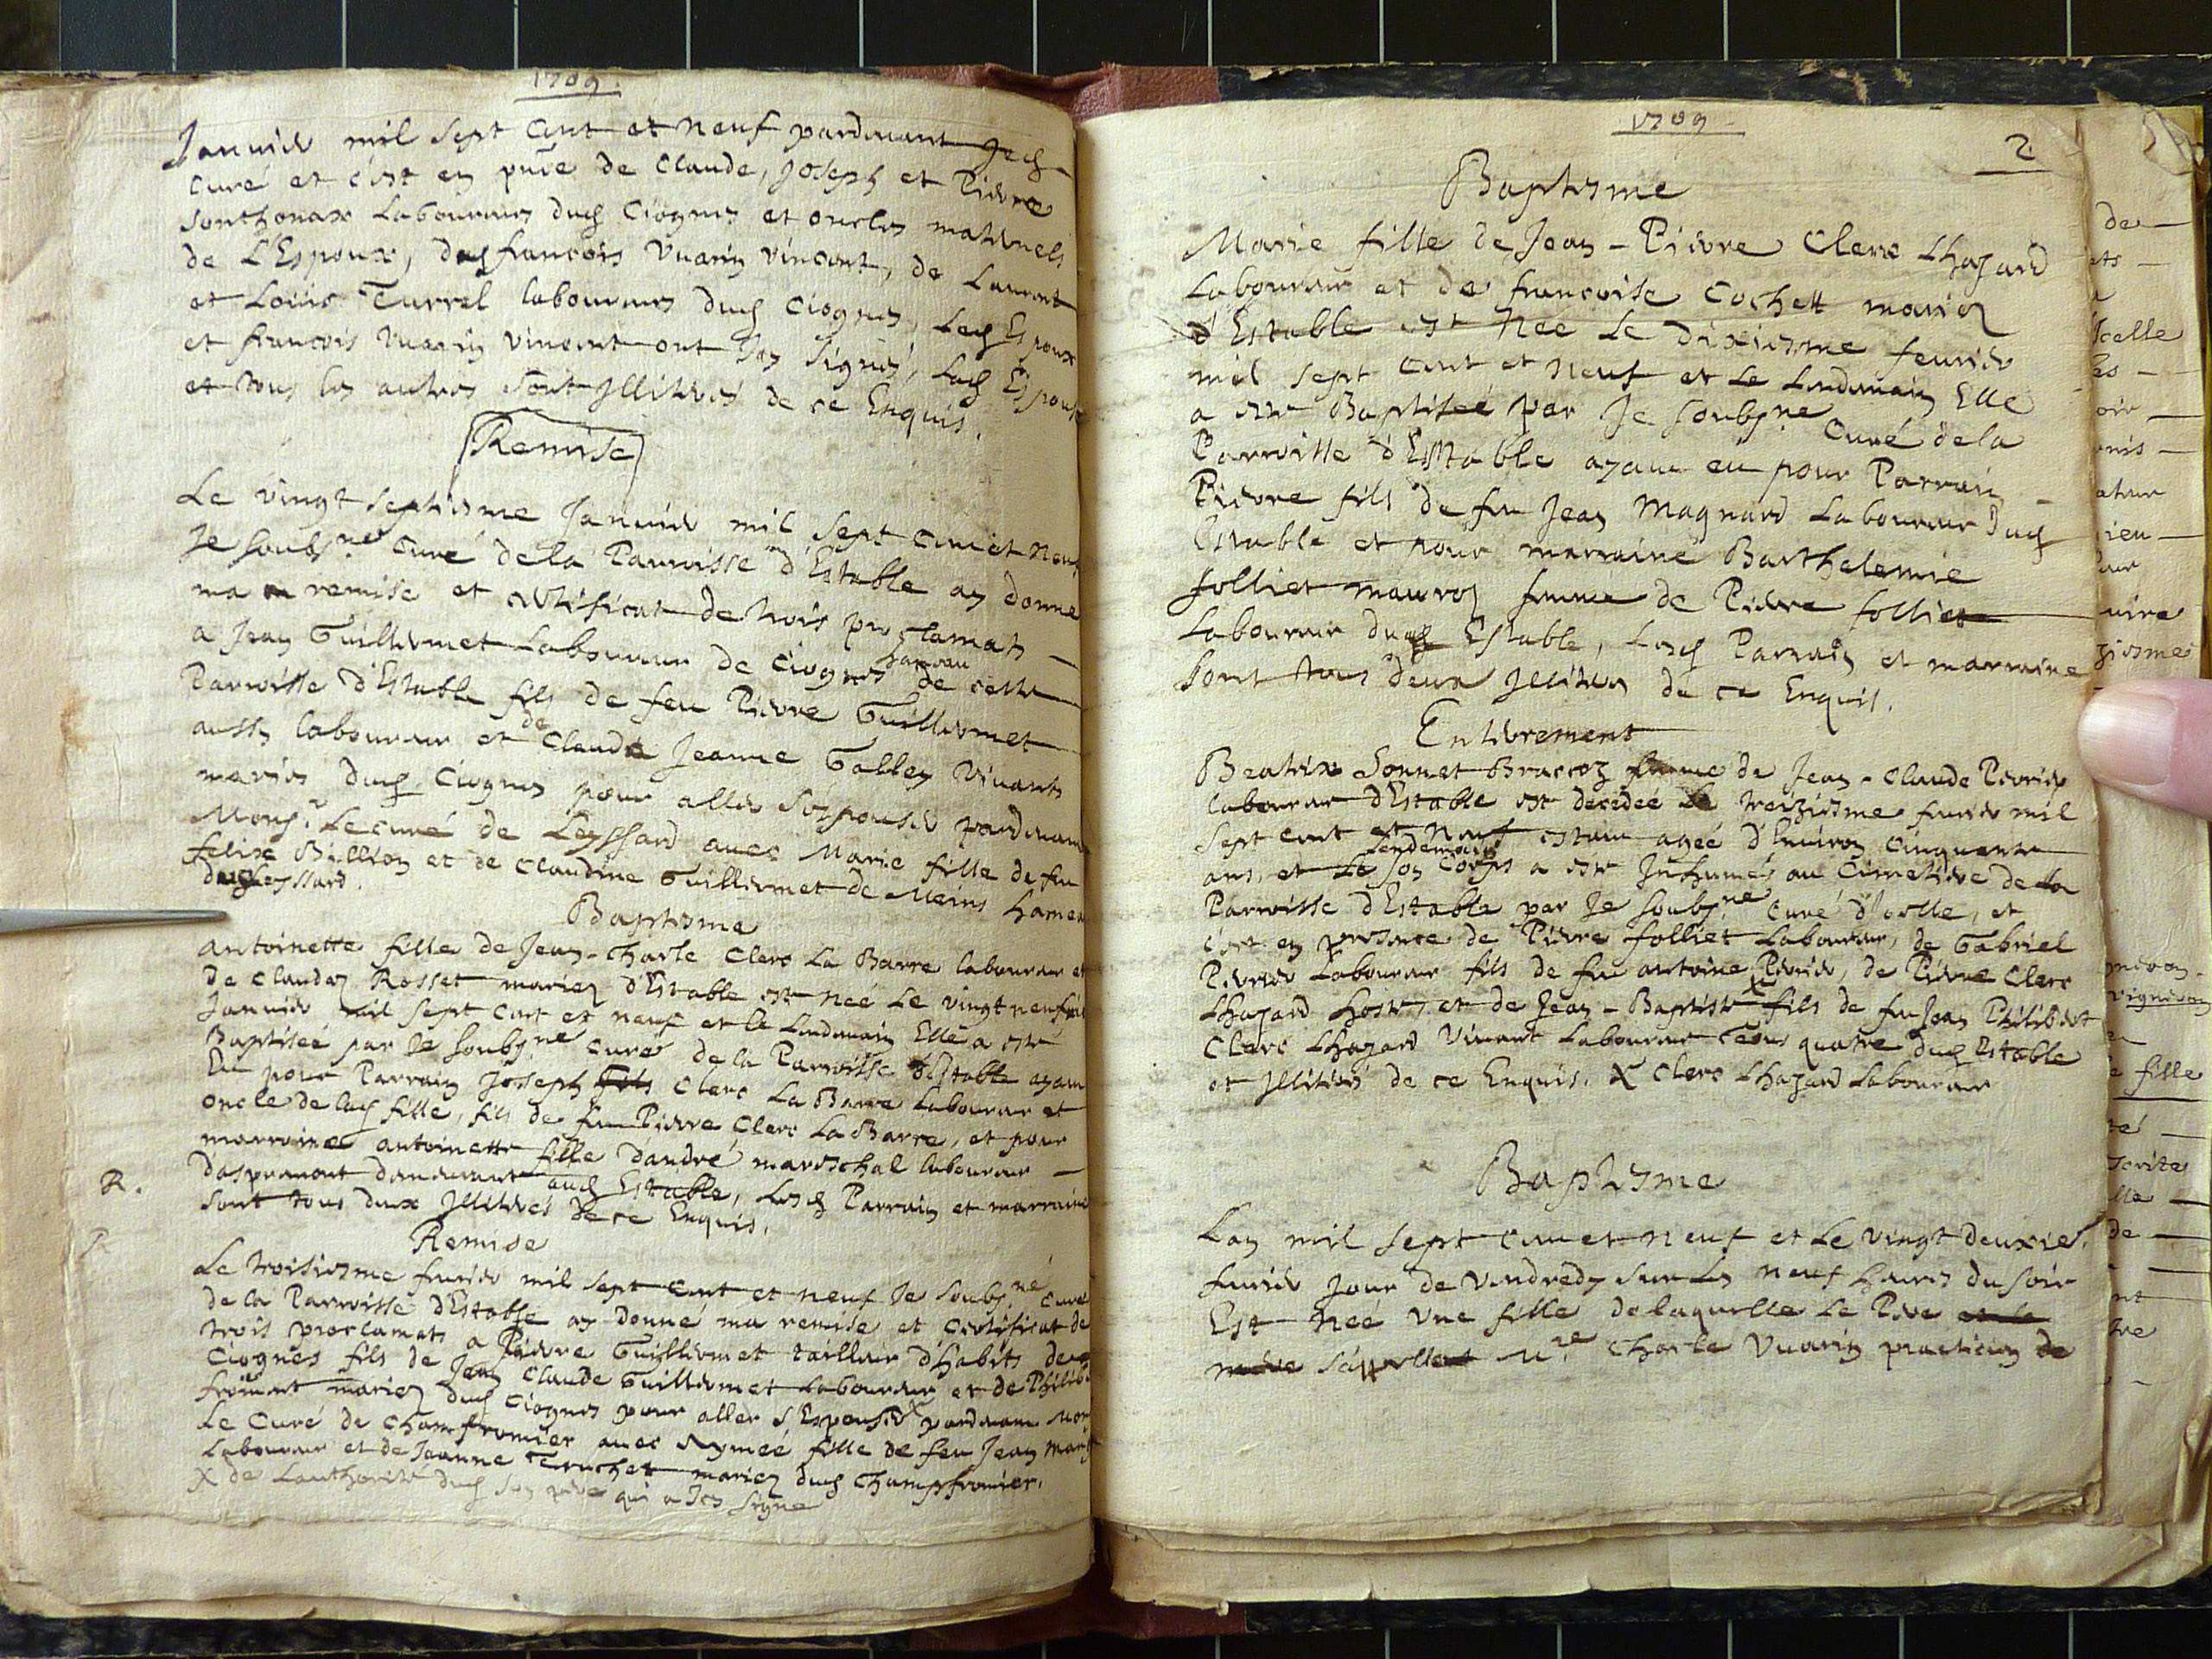 1709.
Januier mil sept cent et neuf pardeuant Je
curé et c'est en pnce de Claude, Joseph et Pierre
Sonthonax Laboureurs dud Ciognes et oncles maternels
de L'Espoux, de francois Vuarin vincent, de Laurent
et Loüis Turrel laboureurs dud Ciognes, Led Espoux
et francois Vuarin vincent ont Icy signés, Lad Espouse
et tous les autres sont Jlliterés de ce Enquis.
Remise
Le vingt septiesme Januier mil sept cent et neuf
Je soubs.né curé de la Parroisse d'Estable ay donné
ma remise et certificat de trois proclamats
a Jean Guillermet Laboureur de Ciognes hameau de cette
Parroisse d'Estable fils de feu Pierre Guillermet
aussy laboureur et de Claude Jeanne Golley viuants
mariés dud Ciognes pour aller s'espouser pardeuant
Mons.r Le curé de Leyssard auec Marie fille de feu
felix Billion et de Claudine Guillermet de Meins hameau
dud Leyssard.
Baptesme
Antoinette fille de Jean-Charle Clerc La Barre laboureur et
de Clauday Rosset mariez d'Estable est neé Le vingt neuf
Januier mil sept cent et neuf et le Lendemain Elle a este
Baptiseé par Je soubs.né curé de la Parroisse d'Estable ayant
Eu pour Parrain Joseph fils Clerc La Barre Laboureur et
oncle de lad fille, fils de feu Pierre Clerc La Barre, et pour
marraine antoinette fille d'andré mareschal laboureur
d'aspremont demeurant aud Estable, Lesd Parrain et marraine
sont tous deux Jlliterés de ce Enquis.
R.
Remise
Le troisiesme feurier mil sept cent et neuf Je soubs.né curé
de la Parroisse d'Estable ay donné ma remise et certificat de
trois proclamats a Pierre Guillermet tailleur d'habits de
Ciognes fils de Jean Claude Guillermet Laboureur et de Philib
froment mariez dud Ciognes pour aller s'Espouser X pardeuant Mon
Le Curé de Champfromier auec Aymeé fille de feu Jean
Laboureur et de Jeanne Truchet mariez dud Champfromier.
X de Lauthorité dud son pere qui a Icy signé
1709.
2
Baptesme
Marie fille de Jean-Pierre Clerc Lhazard
Laboureur et de francoise Cochett mariez
d'Estable est Neé Le dixiesme feurier
mil sept cent et neuf et Le Lendemain Elle
a este Baptiseé par Je soubs.né Curé de la
Parroisse d'Estable ayant eu pour Parrain
Pierre fils de feu Jean Magnard Laboureur dud
Estable et pour marraine Barthelemie
folliet mauroz femme de Pierre folliet
Laboureur dud Estable, Lesd Parrain et marraine
sont tous deux Jlliterés de ce Enquis.
Enterrement
Beatrix Sonnet Braccoz femme de Jean-Claude Perrier
laboureur d'Estable est decedeé Le treiziesme feurier mil
sept cent et neuf estant ageé d'Enuiron cinquente
ans, et Le Lendemain son corps a este Jnhumé au Cimetiere de la
Parroisse d'Estable par Je soubs.né Curé d'Icelle, et
c'est en presence de Pierre folliet Laboureur, de Gabriel
Perrier Laboureur fils de feu antoine Perrier, de Pierre Clerc
Lhazard Hoste, et de Jean-Baptiste X fils de feu Jean Philibert
Clerc Lhazard viuant Laboureur Tous quatre dud Estable
et Jlliterés de ce Enquis. X Clerc Lhazard Laboureur
Baptesme
Lan mil sept cent et neuf et Le vingt deuxie.
feurier jour de vendredy sur Les neuf heures du soir
Est Neé vne fille de laquelle Le Pere et la
mere s'appellent M.re Charle Vuarin practicien de